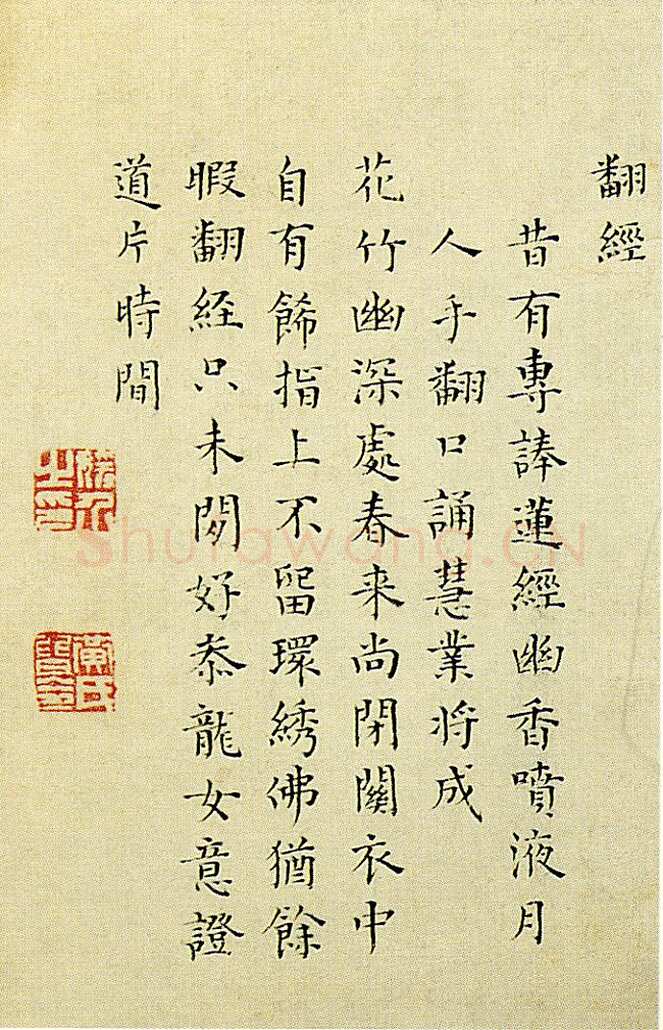 翻經
昔有專誦蓮經幽香噴液月
人手翻口誦慧業将成
花竹幽深處春来尚閉關衣中
自有餙指上不留環綉佛猶餘
暇翻経只未閑好叅龍女意證
道片時間
shufawang.CN